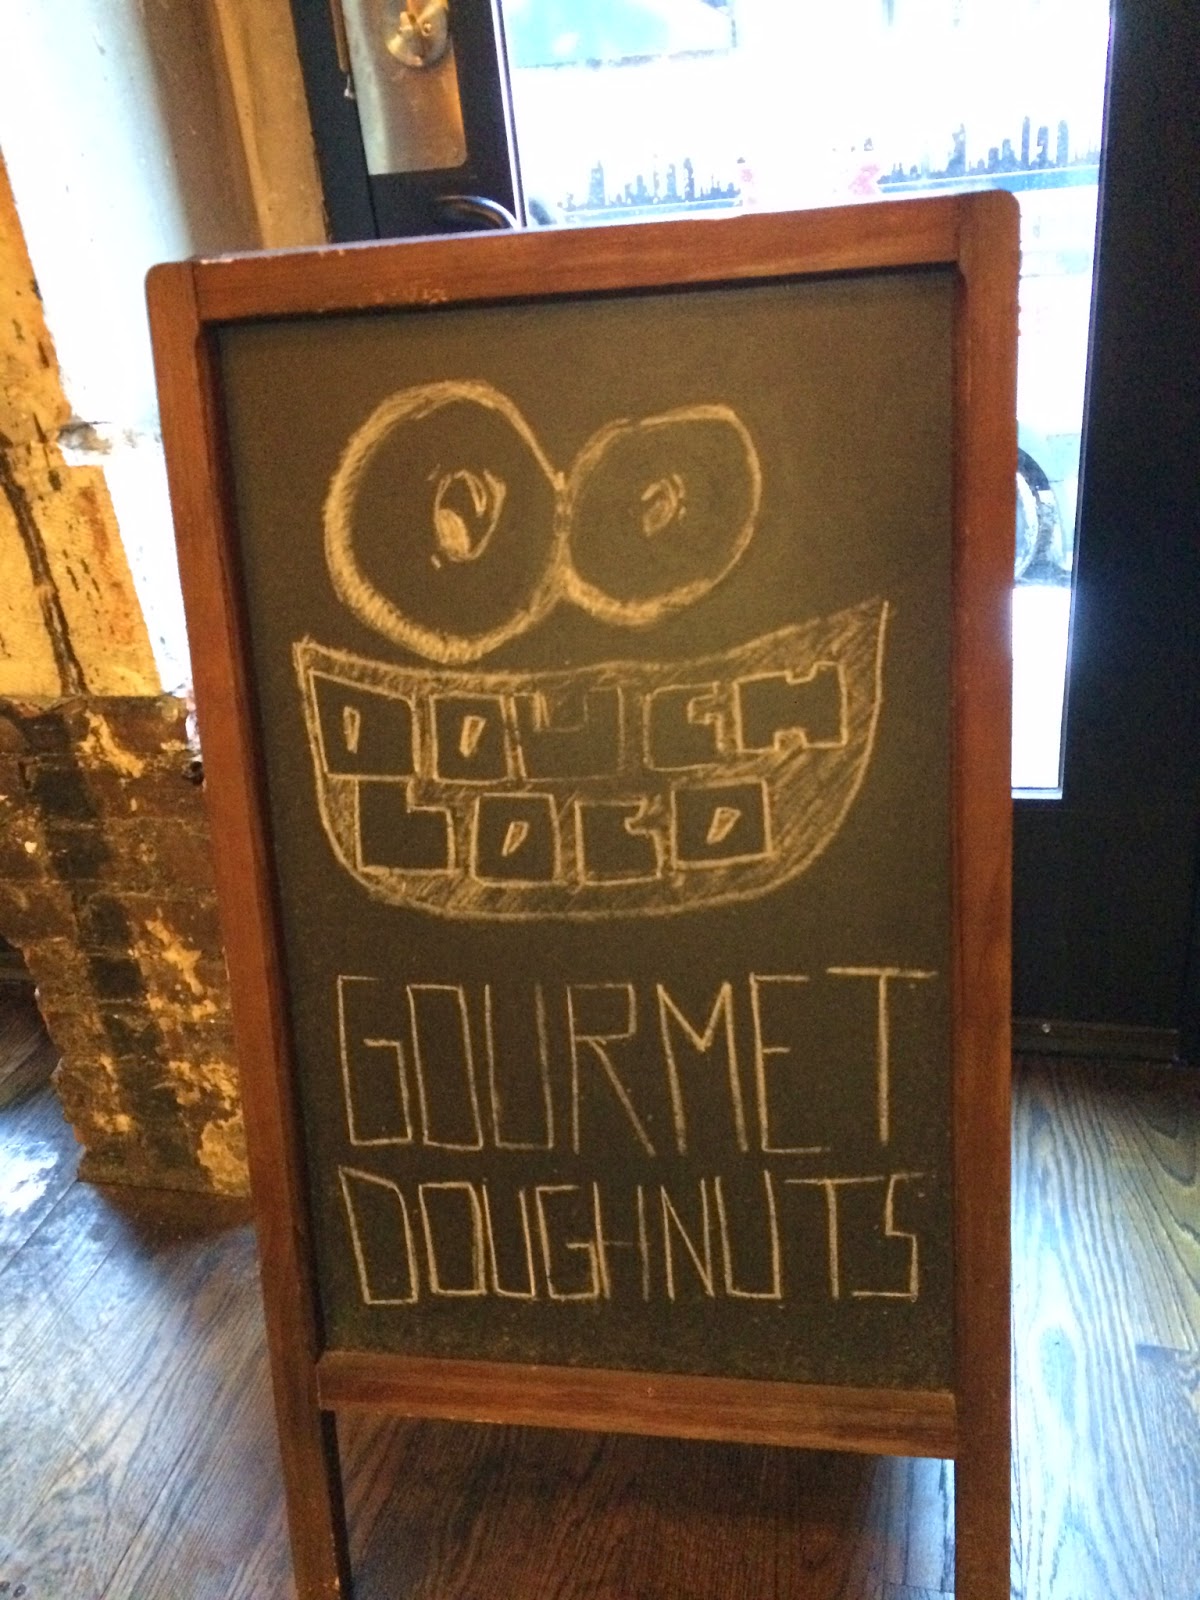 DOUGH
LOCO
GOURMET
DOUGHNUTS